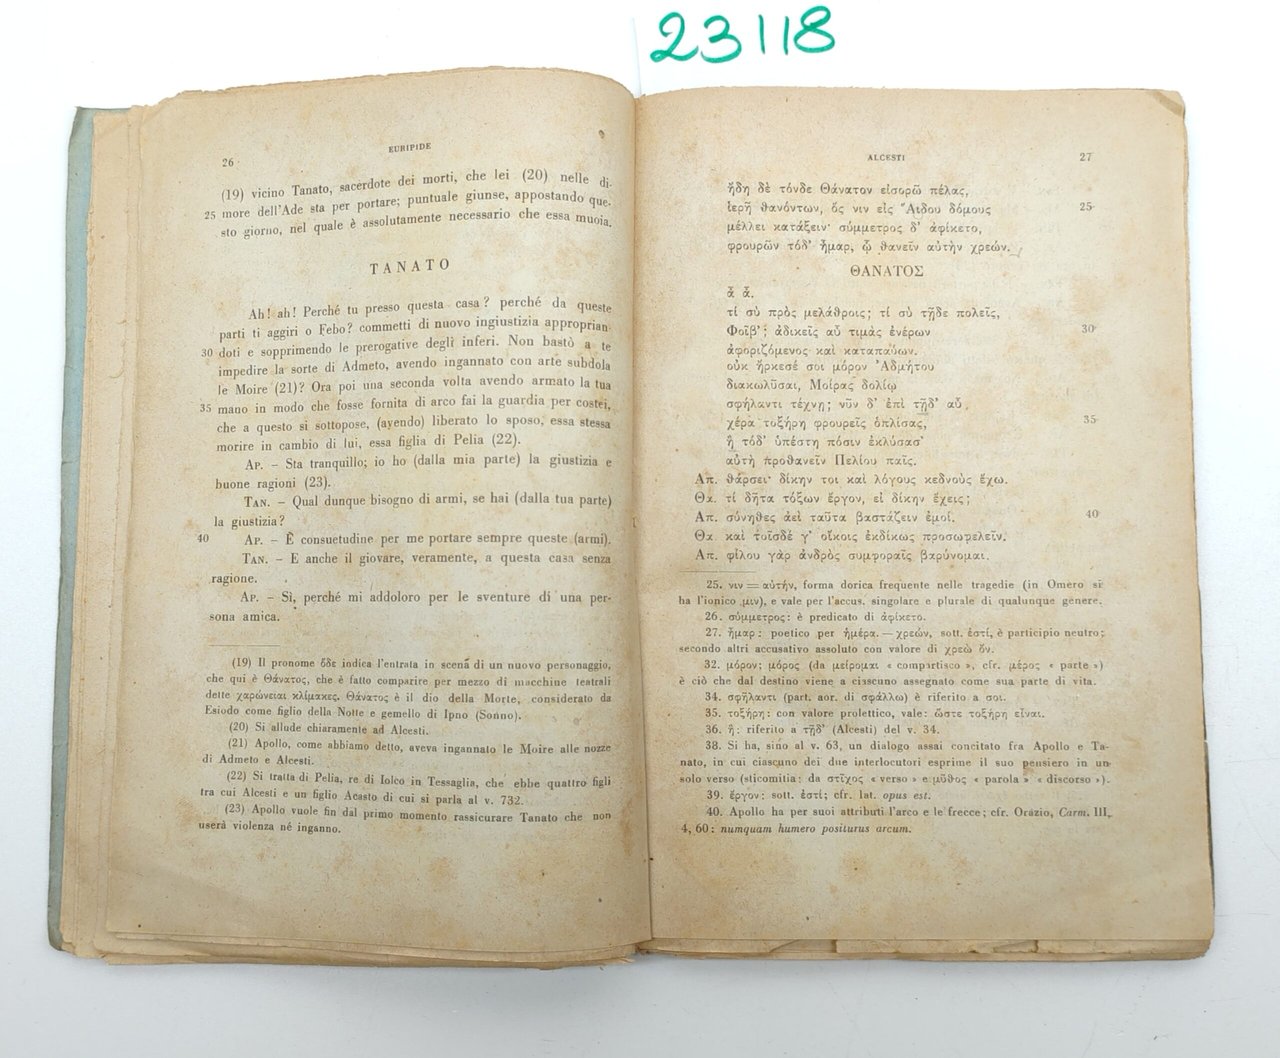 23118
26
EURIPIDE
(19) vicino Tanato, sacerdote dei morti, che lei (20) nelle di-
25 more dell'Ade sta per portare; puntuale giunse, appostando que-
sto giorno, nel quale è assolutamente necessario che essa muoia.
TANATO
Ah! ah! Perché tu presso questa casa? perché da queste
parti ti aggiri o Febo? commetti di nuovo ingiustizia approprian-
30 doti e sopprimendo le prerogative degli inferi. Non bastò a te
impedire la sorte di Admeto, avendo ingannato con arte subdola
le Moire (21)? Ora poi una seconda volta avendo armato la tua
35 mano in modo che fosse fornita di arco fai la guardia per costei,
che a questo si sottopose, (ayendo) liberato lo sposo, essa stessa
morire in cambio di lui, essa figlia di Pelia (22).
AP. – Sta tranquillo; io ho (dalla mia parte) la giustizia e
buone ragioni (23).
TAN. – Qual dunque bisogno di armi, se hai (dalla tua parte)
la giustizia?
40 AP. – È consuetudine per me portare sempre queste (armi).
TAN. – E anche il giovare, veramente, a questa casa senza
ragione.
AP. – Sì, perché mi addoloro per le sventure di una per-
sona amica.
(19) Il pronome ὅδε indica l'entrata in scena di un nuovo personaggio,
che qui è Θάνατος, che è fatto comparire per mezzo di macchine teatrali
dette χαρώνειαι κλίμακες. Θάνατος è il dio della Morte, considerato da
Esiodo come figlio della Notte e gemello di Ipno (Sonno).
(20) Si allude chiaramente ad Alcesti.
(21) Apollo, come abbiamo detto, aveva ingannato le Moire alle nozze
di Admeto e Alcesti.
(22) Si tratta di Pelia, re di Iolco in Tessaglia, che ebbe quattro figli
tra cui Alcesti e un figlio Acasto di cui si parla al v. 732.
(23) Apollo vuole fin dal primo momento rassicurare Tanato che non
userà violenza né inganno.
ALCESTI
27
ἤδη δὲ τόνδε Θάνατον εἰσορῶ πέλας,
ἱερῆ θανόντων, ὅς νιν εἰς Ἅιδου δόμους 25
μέλλει κατάξειν· σύμμετρος δ' ἀφίκετο,
φρουρῶν τόδ' ἦμαρ, ᾧ θανεῖν αὐτὴν χρεών.
ΘΑΝΑΤΟΣ
ἆ ἆ.
τί σὺ πρὸς μελάθροις; τί σὺ τῇδε πολεῖς,
Φοῖβ'; ἀδικεῖς αὖ τιμὰς ἐνέρων 30
ἀφοριζόμενος καὶ καταπαύων.
οὐκ ἤρκεσέ σοι μόρον Ἀδμήτου
διακωλῦσαι, Μοίρας δολίῳ
σφήλαντι τέχνῃ; νῦν δ' ἐπὶ τῇδ' αὖ
χέρα τοξήρη φρουρεῖς ὁπλίσας, 35
ἣ τόδ' ὑπέστη πόσιν ἐκλύσασ'
αὐτὴ προθανεῖν Πελίου παῖς.
Απ. θάρσει· δίκην τοι καὶ λόγους κεδνοὺς ἔχω.
Θα. τί δῆτα τόξων ἔργον, εἰ δίκην ἔχεις;
Απ. σύνηθες ἀεὶ ταῦτα βαστάζειν ἐμοί. 40
Θα. καὶ τοῖσδέ γ' οἴκοις ἐκδίκως προσωφελεῖν.
Απ. φίλου γὰρ ἀνδρὸς συμφοραῖς βαρύνομαι.
25. νιν = αὐτήν, forma dorica frequente nelle tragedie (in Omero si
ha l'ionico μιν), e vale per l'accus. singolare e plurale di qualunque genere.
26. σύμμετρος: è predicato di ἀφίκετο.
27. ἦμαρ: poetico per ἡμέρα. — χρεών, sott. ἐστί, è participio neutro;
secondo altri accusativo assoluto con valore di χρεὼ ὄν.
32. μόρον; μόρος (da μείρομαι « compartisco », cfr. μέρος « parte »)
è ciò che dal destino viene a ciascuno assegnato come sua parte di vita.
34. σφήλαντι (part. aor. di σφάλλω) è riferito a σοι.
35. τοξήρη: con valore prolettico, vale: ὥστε τοξήρη εἶναι.
36. ἥ: riferito a τῇδ' (Alcesti) del v. 34.
38. Si ha, sino al v. 63, un dialogo assai concitato fra Apollo e Ta-
nato, in cui ciascuno dei due interlocutori esprime il suo pensiero in un
solo verso (sticomitia: da στῖχος « verso » e μῦθος « parola » « discorso »).
39. ἔργον: sott. ἐστί; cfr. lat. opus est.
40. Apollo ha per suoi attributi l'arco e le frecce; cfr. Orazio, Carm. III,
4, 60: numquam humero positurus arcum.